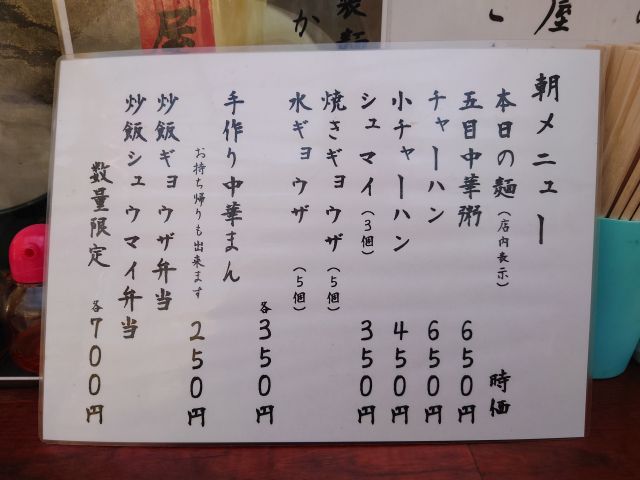 朝メニュー
本日の麺（店内表示） 時価
五目中華粥 650円
チャーハン 650円
小チャーハン 450円
シュマイ（3個） 350円
焼きギョウザ（5個）
水ギョウザ（5個） 各350円
手作り中華まん
お持ち帰りも出来ます 250円
炒飯ギョウザ弁当
炒飯シュウマイ弁当
数量限定 各700円
屋
か
製麺
屋